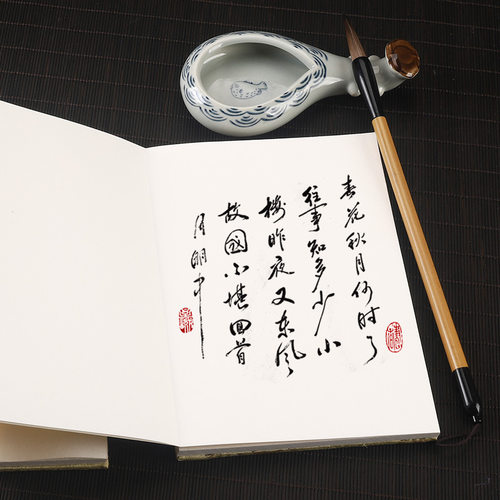 春花秋月何时了
往事知多少小
楼昨夜又东风
故国不堪回首
月明中